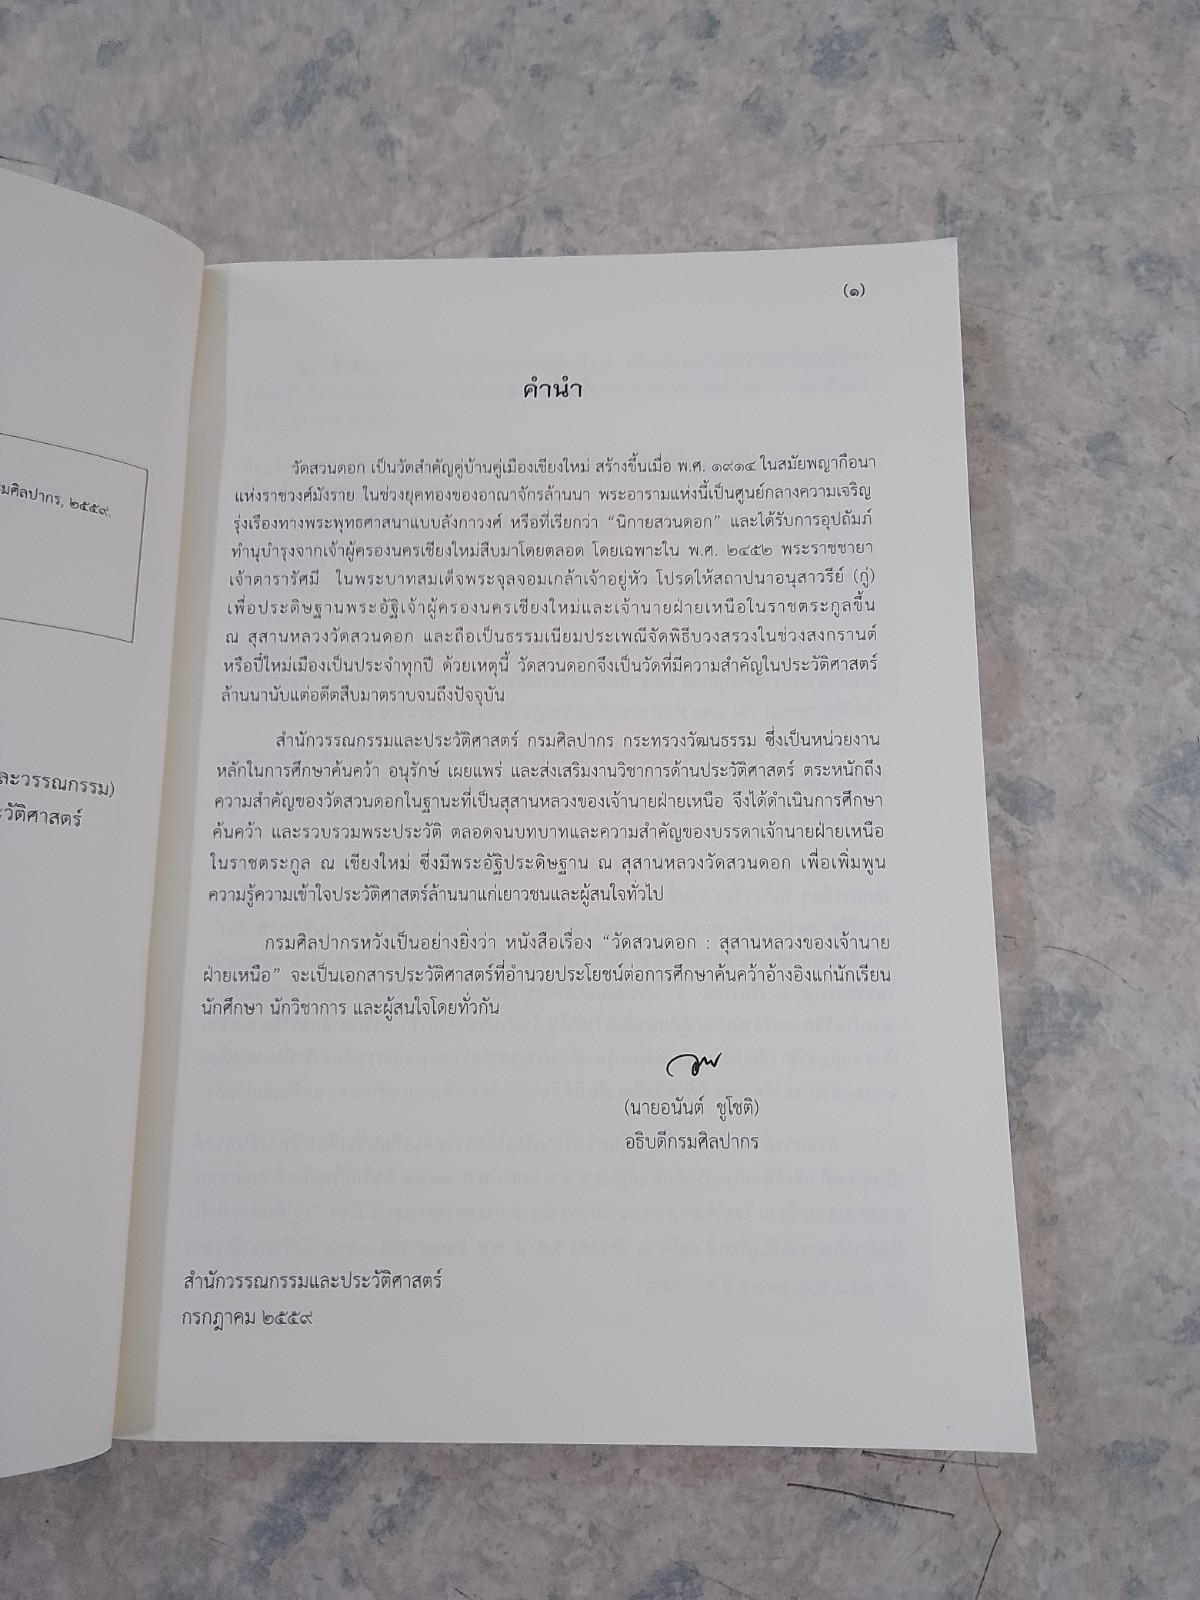 มศิลปากร, ๒๕๕๙.
ละวรรณกรรม)
ะวัติศาสตร์
(๑)
คำนำ
วัดสวนดอก เป็นวัดสำคัญคู่บ้านคู่เมืองเชียงใหม่ สร้างขึ้นเมื่อ พ.ศ. ๑๙๑๔ ในสมัยพญากือนา
แห่งราชวงศ์มังราย ในช่วงยุคทองของอาณาจักรล้านนา พระอารามแห่งนี้เป็นศูนย์กลางความเจริญ
รุ่งเรืองทางพระพุทธศาสนาแบบลังกาวงศ์ หรือที่เรียกว่า “นิกายสวนดอก” และได้รับการอุปถัมภ์
ทำนุบำรุงจากเจ้าผู้ครองนครเชียงใหม่สืบมาโดยตลอด โดยเฉพาะใน พ.ศ. ๒๔๕๒ พระราชชายา
เจ้าดารารัศมี ในพระบาทสมเด็จพระจุลจอมเกล้าเจ้าอยู่หัว โปรดให้สถาปนาอนุสาวรีย์ (กู่)
เพื่อประดิษฐานพระอัฐิเจ้าผู้ครองนครเชียงใหม่และเจ้านายฝ่ายเหนือในราชตระกูลขึ้น
ณ สุสานหลวงวัดสวนดอก และถือเป็นธรรมเนียมประเพณีจัดพิธีบวงสรวงในช่วงสงกรานต์
หรือปี๋ใหม่เมืองเป็นประจำทุกปี ด้วยเหตุนี้ วัดสวนดอกจึงเป็นวัดที่มีความสำคัญในประวัติศาสตร์
ล้านนานับแต่อดีตสืบมาตราบจนถึงปัจจุบัน
สำนักวรรณกรรมและประวัติศาสตร์ กรมศิลปากร กระทรวงวัฒนธรรม ซึ่งเป็นหน่วยงาน
หลักในการศึกษาค้นคว้า อนุรักษ์ เผยแพร่ และส่งเสริมงานวิชาการด้านประวัติศาสตร์ ตระหนักถึง
ความสำคัญของวัดสวนดอกในฐานะที่เป็นสุสานหลวงของเจ้านายฝ่ายเหนือ จึงได้ดำเนินการศึกษา
ค้นคว้า และรวบรวมพระประวัติ ตลอดจนบทบาทและความสำคัญของบรรดาเจ้านายฝ่ายเหนือ
ในราชตระกูล ณ เชียงใหม่ ซึ่งมีพระอัฐิประดิษฐาน ณ สุสานหลวงวัดสวนดอก เพื่อเพิ่มพูน
ความรู้ความเข้าใจประวัติศาสตร์ล้านนาแก่เยาวชนและผู้สนใจทั่วไป
กรมศิลปากรหวังเป็นอย่างยิ่งว่า หนังสือเรื่อง “วัดสวนดอก : สุสานหลวงของเจ้านาย
ฝ่ายเหนือ” จะเป็นเอกสารประวัติศาสตร์ที่อำนวยประโยชน์ต่อการศึกษาค้นคว้าอ้างอิงแก่นักเรียน
นักศึกษา นักวิชาการ และผู้สนใจโดยทั่วกัน
(นายอนันต์ ชูโชติ)
อธิบดีกรมศิลปากร
สำนักวรรณกรรมและประวัติศาสตร์
กรกฎาคม ๒๕๕๙